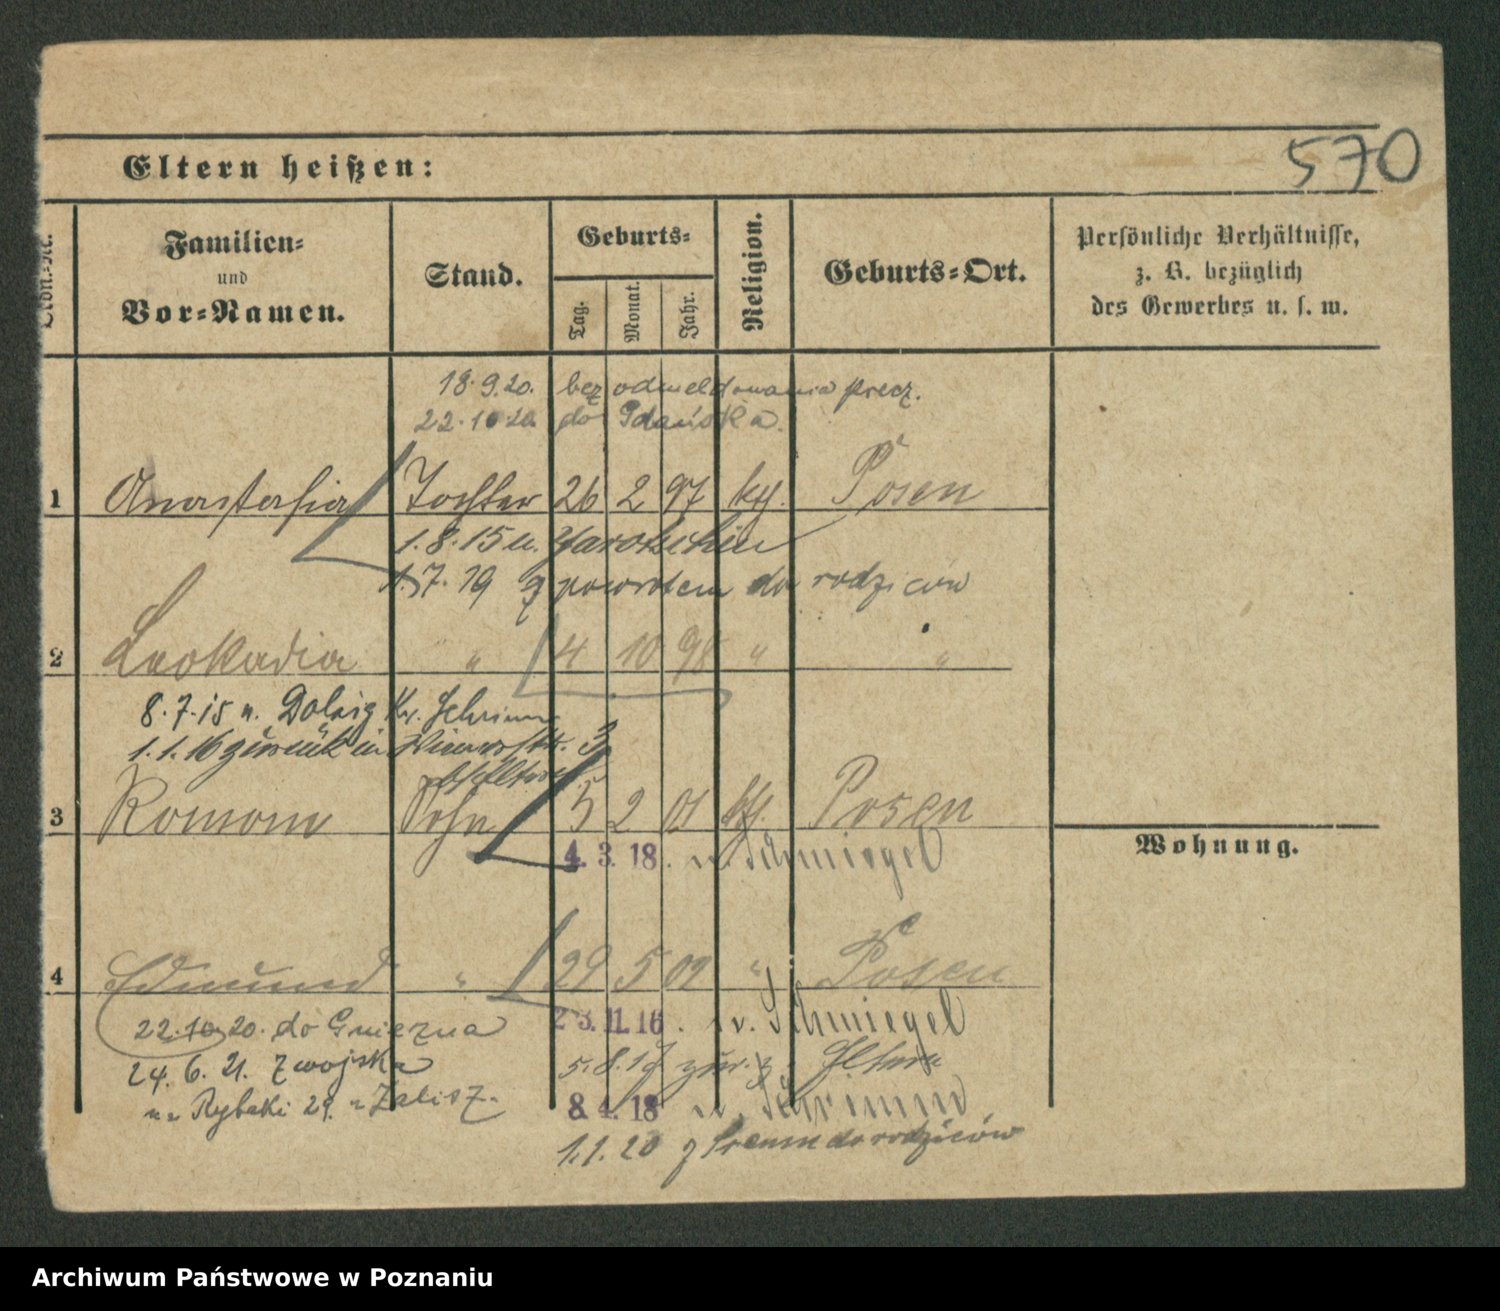 570
Eltern heißen:
Lfdn.-Nr.
Familien- und Vor-Namen.
Stand.
Geburts-
Tag. Monat. Jahr.
Religion.
Geburts-Ort.
Persönliche Verhältnisse,
z. B. bezüglich
des Gewerbes u. s. w.
18.9.20. bez odmeldowania precz.
22.10.20 do Gdańska.
1 Anastasia Tochter 26 2 97 kth. Posen
1.8.15 n. Jarotschin
1.7.19 z powrotem do rodziców
2 Leokadia " 4 10 98 " "
8.7.15 n. Dolzig Kr. Schrimm
1.1.16 zurück in 3
3 Roman Sohn 5 2 01 kth. Posen
4. 3. 18. n. Schmiegel
Wohnung.
4 Edmund " 29 5 02 " Posen
22.10.20. do Gniezna
23.11.16. n. Schmiegel
24.6.21. z wojska
5.8.17 zur. z. Eltern
na Rybaki 29.
8. 4. 18 n. Schrimm
1.1.20 z Śremu do rodziców
Archiwum Państwowe w Poznaniu